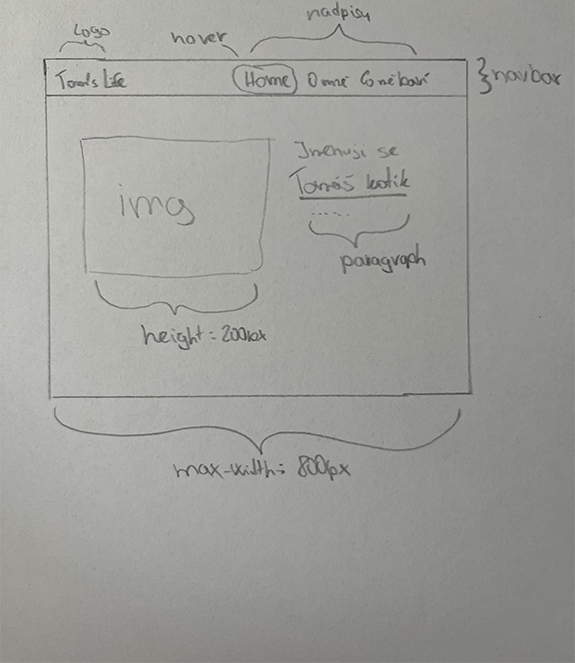 Logo
hover
nadpisy
Tomas Life
Home
O mně
Co mě baví
navbar
img
Jmenuji se
Tomáš kotik
.....
paragraph
height: 200px
max-width: 800px